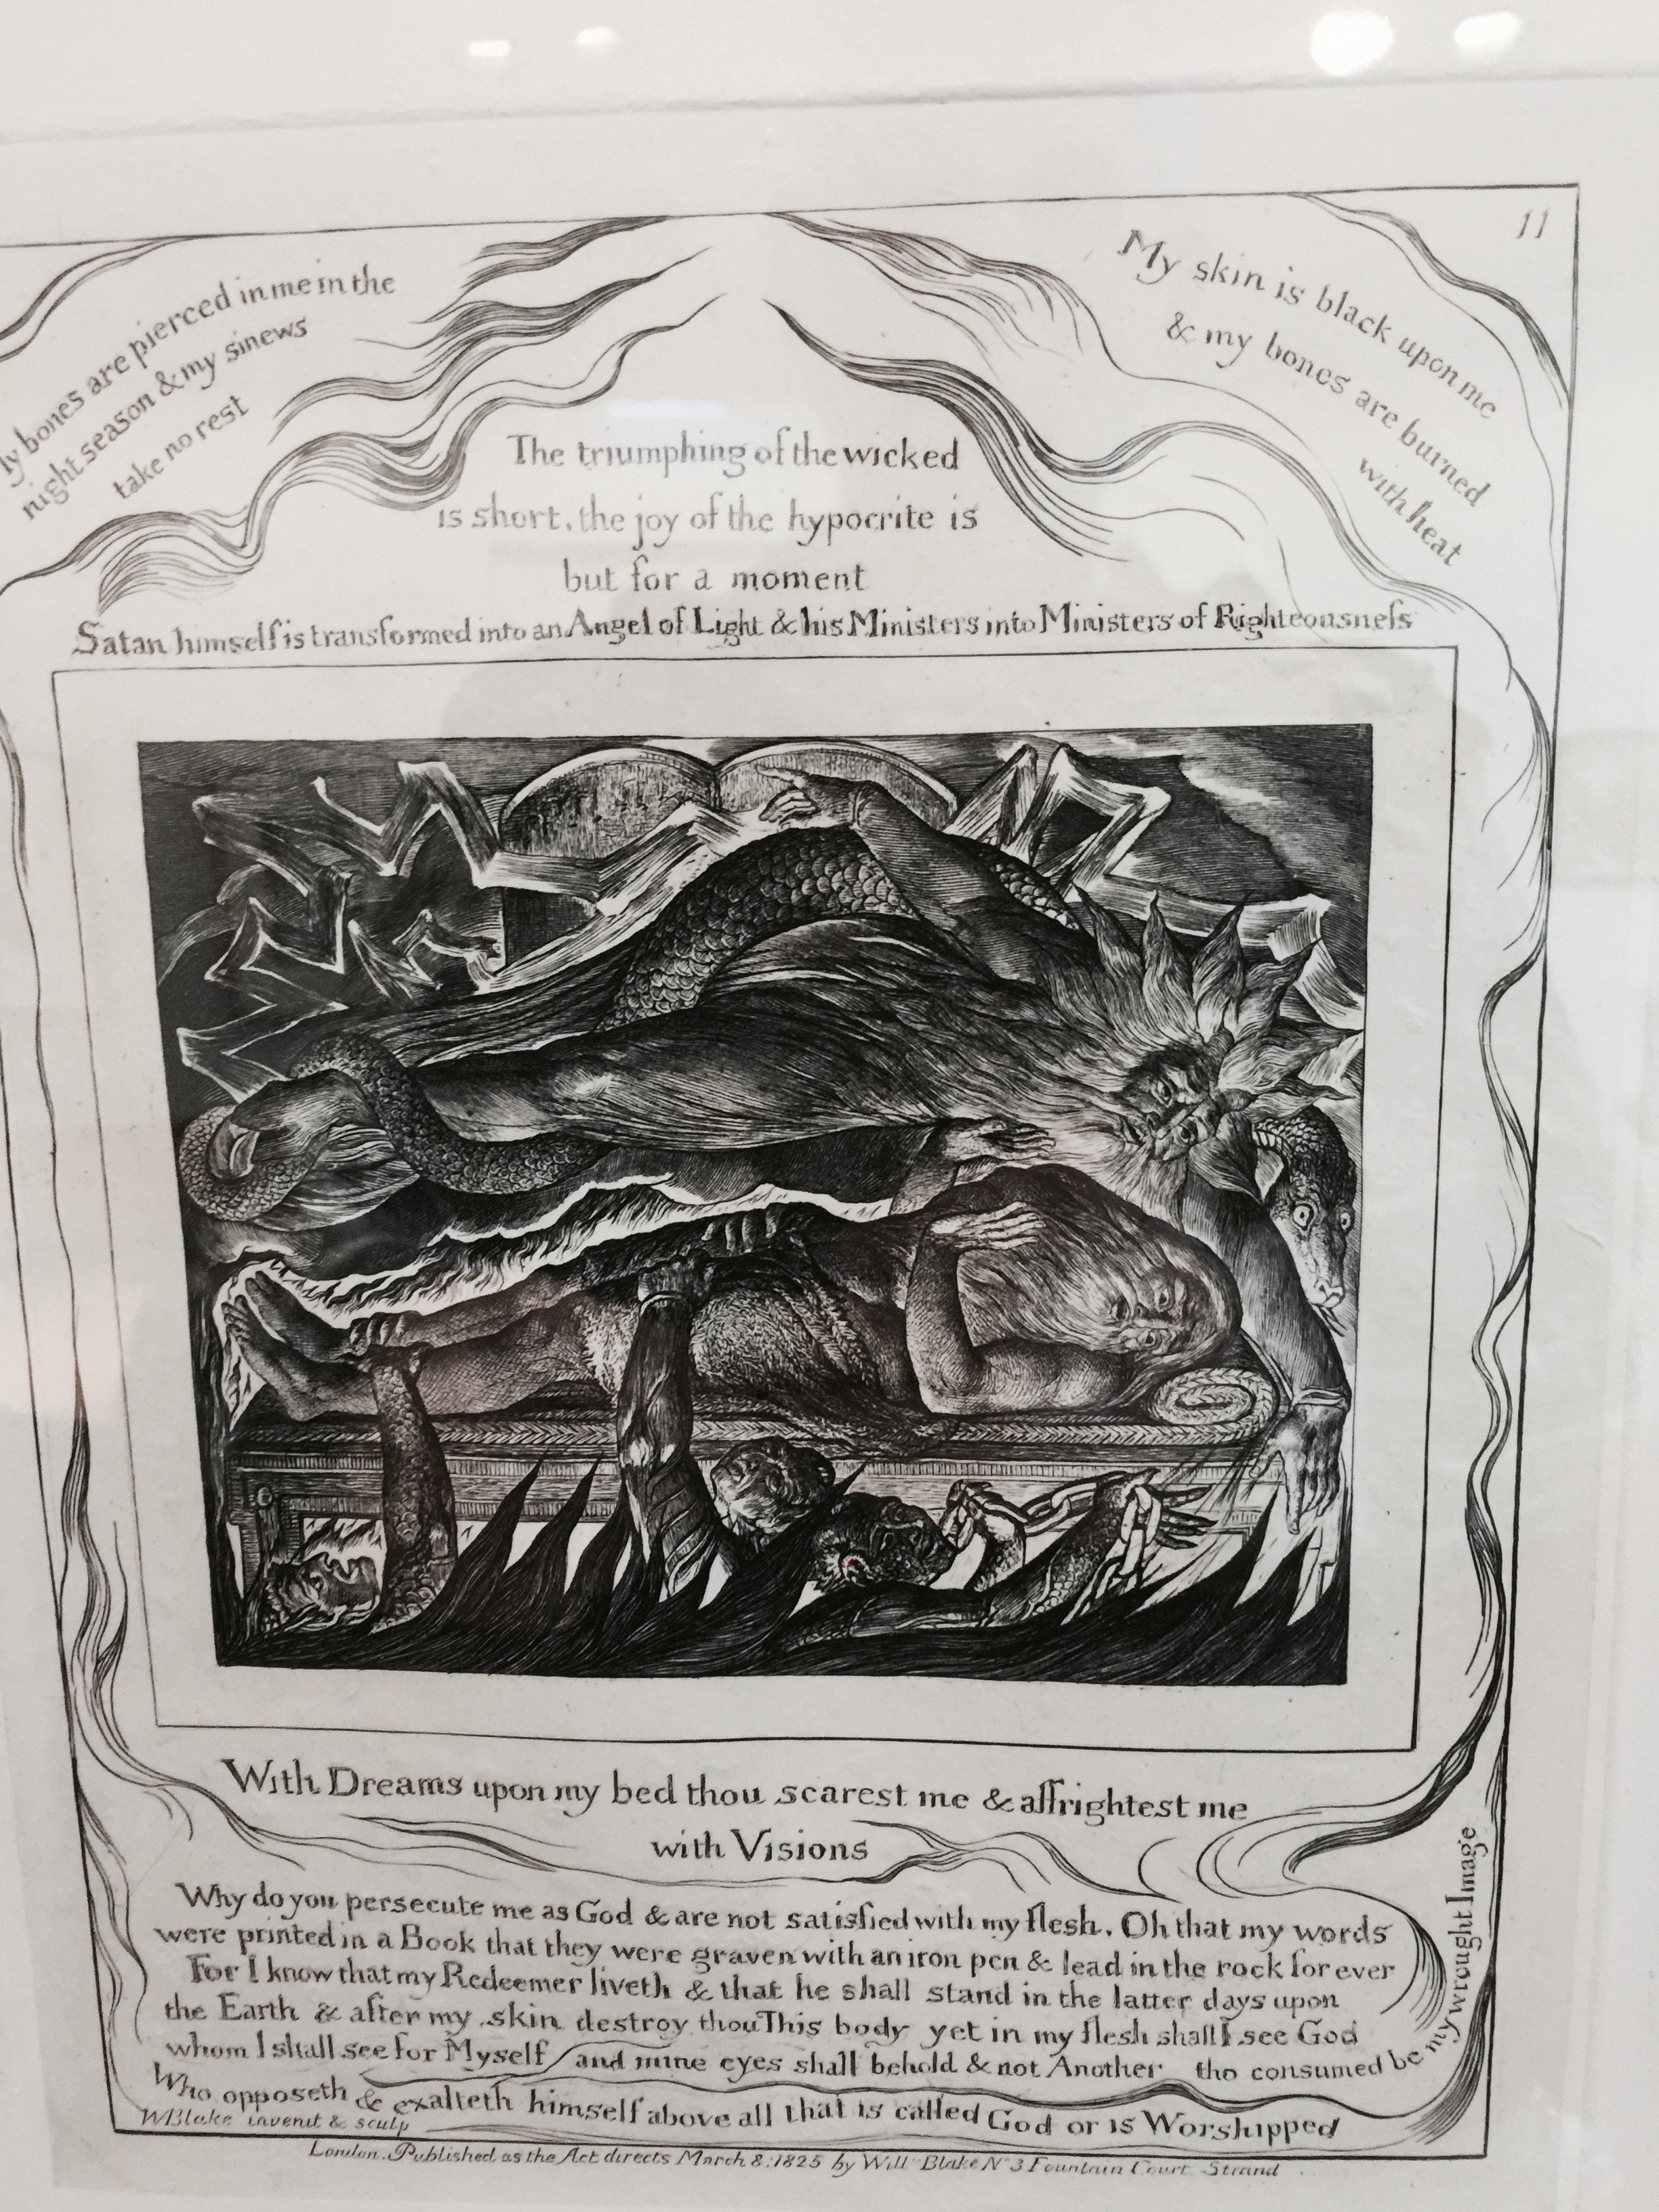 11
ly bones are pierced in me in the
night season & my sinews
take no rest
My skin is black upon me
& my bones are burned
with heat
The triumphing of the wicked
is short, the joy of the hypocrite is
but for a moment
Satan himself is transformed into an Angel of Light & his Ministers into Ministers of Righteousneſs
With Dreams upon my bed thou scarest me & affrightest me
with Visions
Why do you persecute me as God & are not satisfied with my flesh. Oh that my words
were printed in a Book that they were graven with an iron pen & lead in the rock for ever
For I know that my Redeemer liveth & that he shall stand in the latter days upon
the Earth & after my skin destroy thou This body yet in my flesh shall I see God
whom I shall see for Myself and mine eyes shall behold & not Another tho consumed be my wrought Image
Who opposeth & exalteth himself above all that is called God or is Worshipped
WBlake invenit & sculp
London. Published as the Act directs March 8: 1825 by Will Blake N 3 Fountain Court Strand